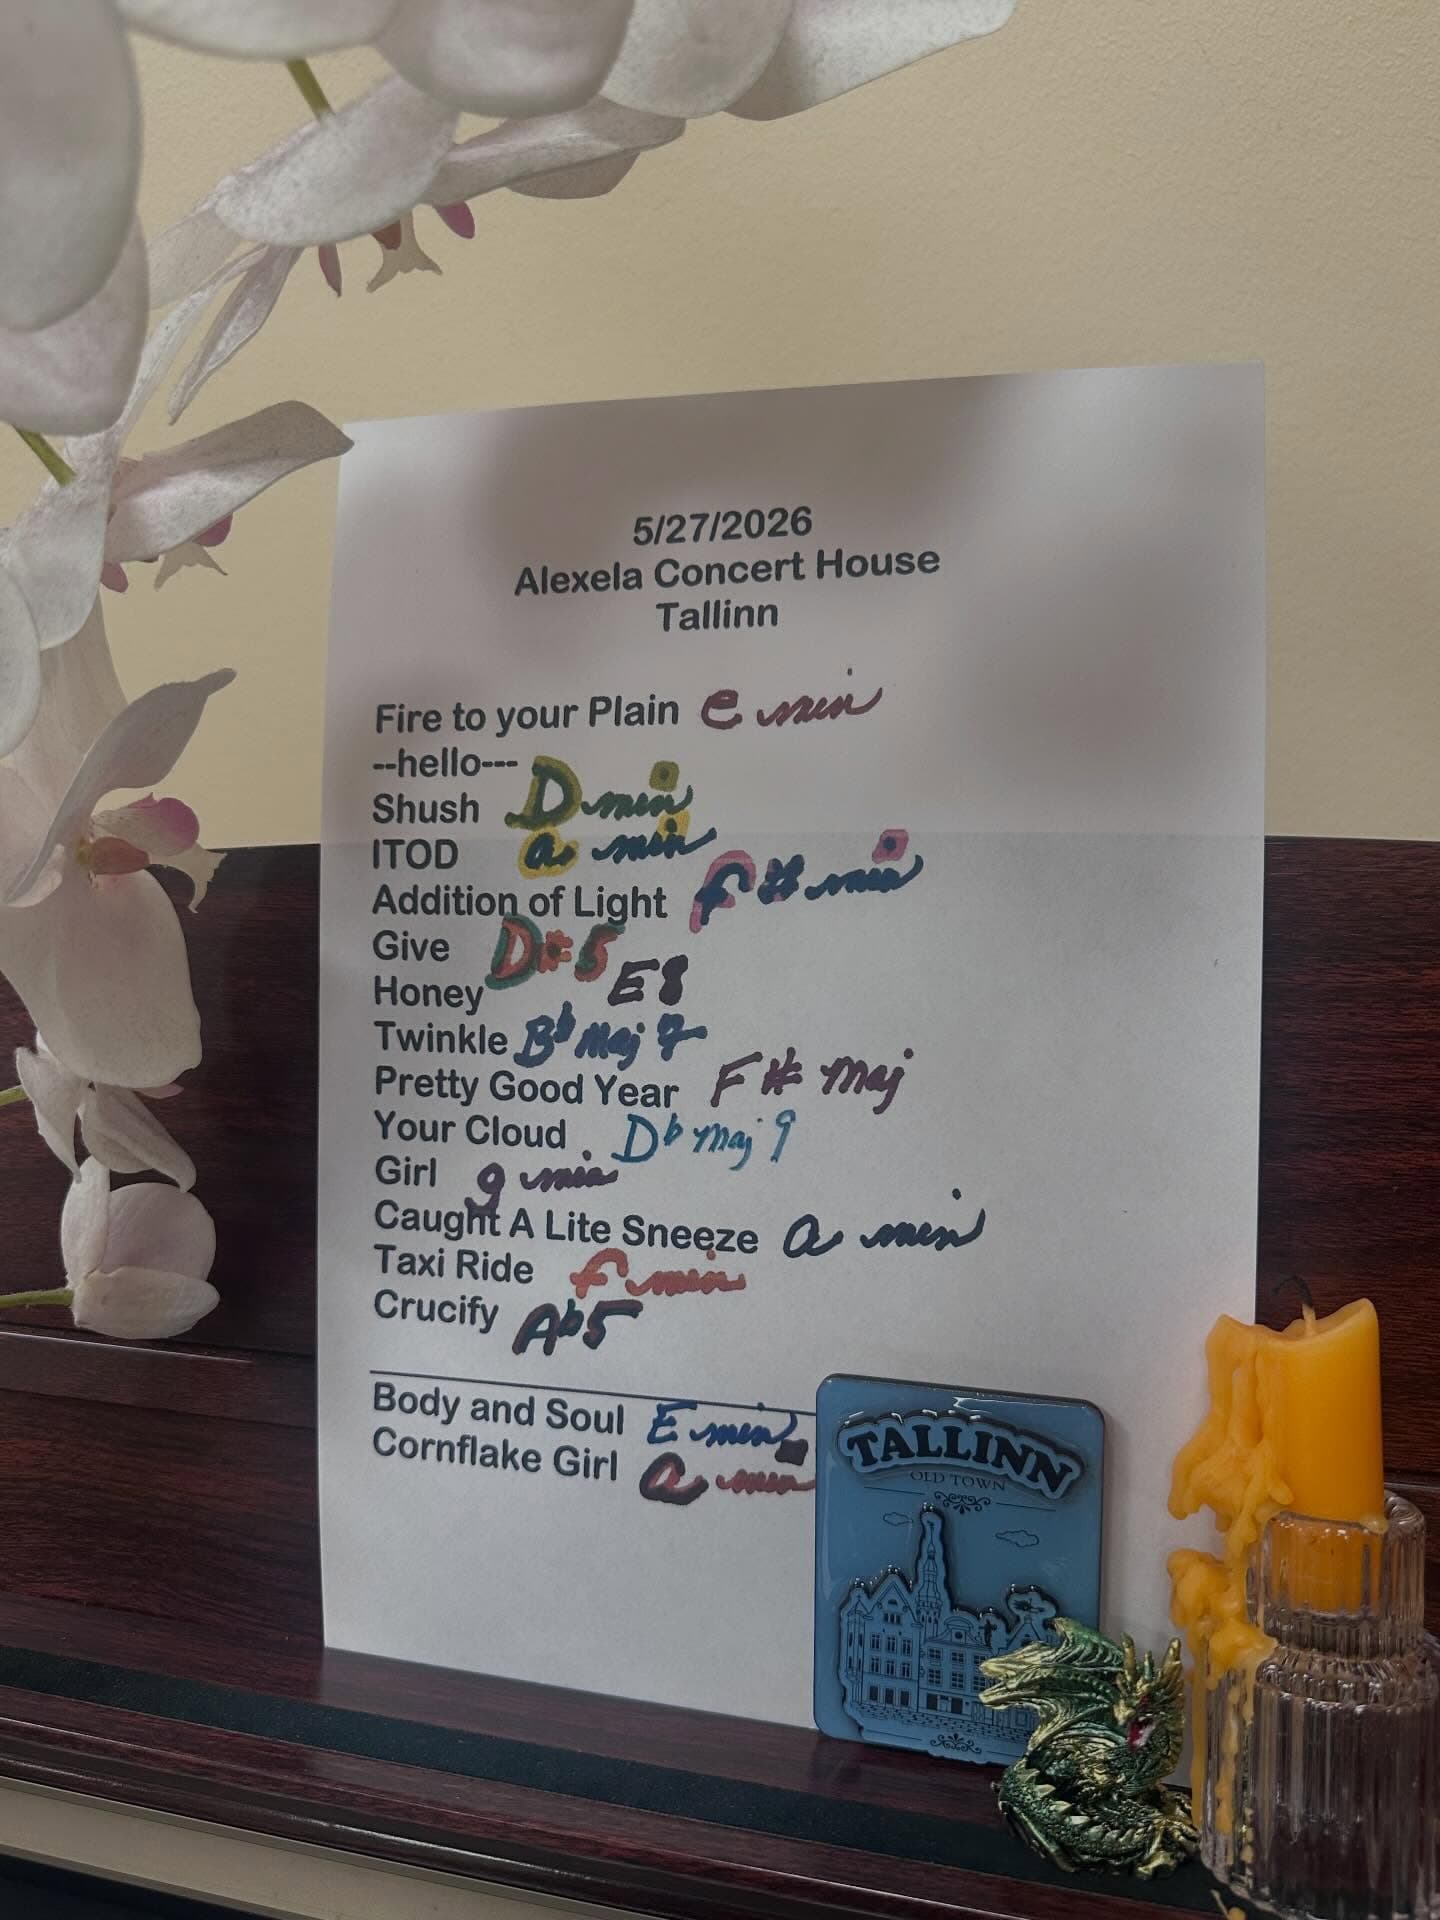 5/27/2026
Alexela Concert House
Tallinn
Fire to your Plain e min
--hello---
Shush D min
ITOD a min
Addition of Light f # min
Give D#5
Honey E8
Twinkle Bb Maj 7
Pretty Good Year F # Maj
Your Cloud Db Maj 9
Girl g min
Caught A Lite Sneeze a min
Taxi Ride f min
Crucify Ab5
Body and Soul E min
Cornflake Girl a min
TALLINN
OLD TOWN